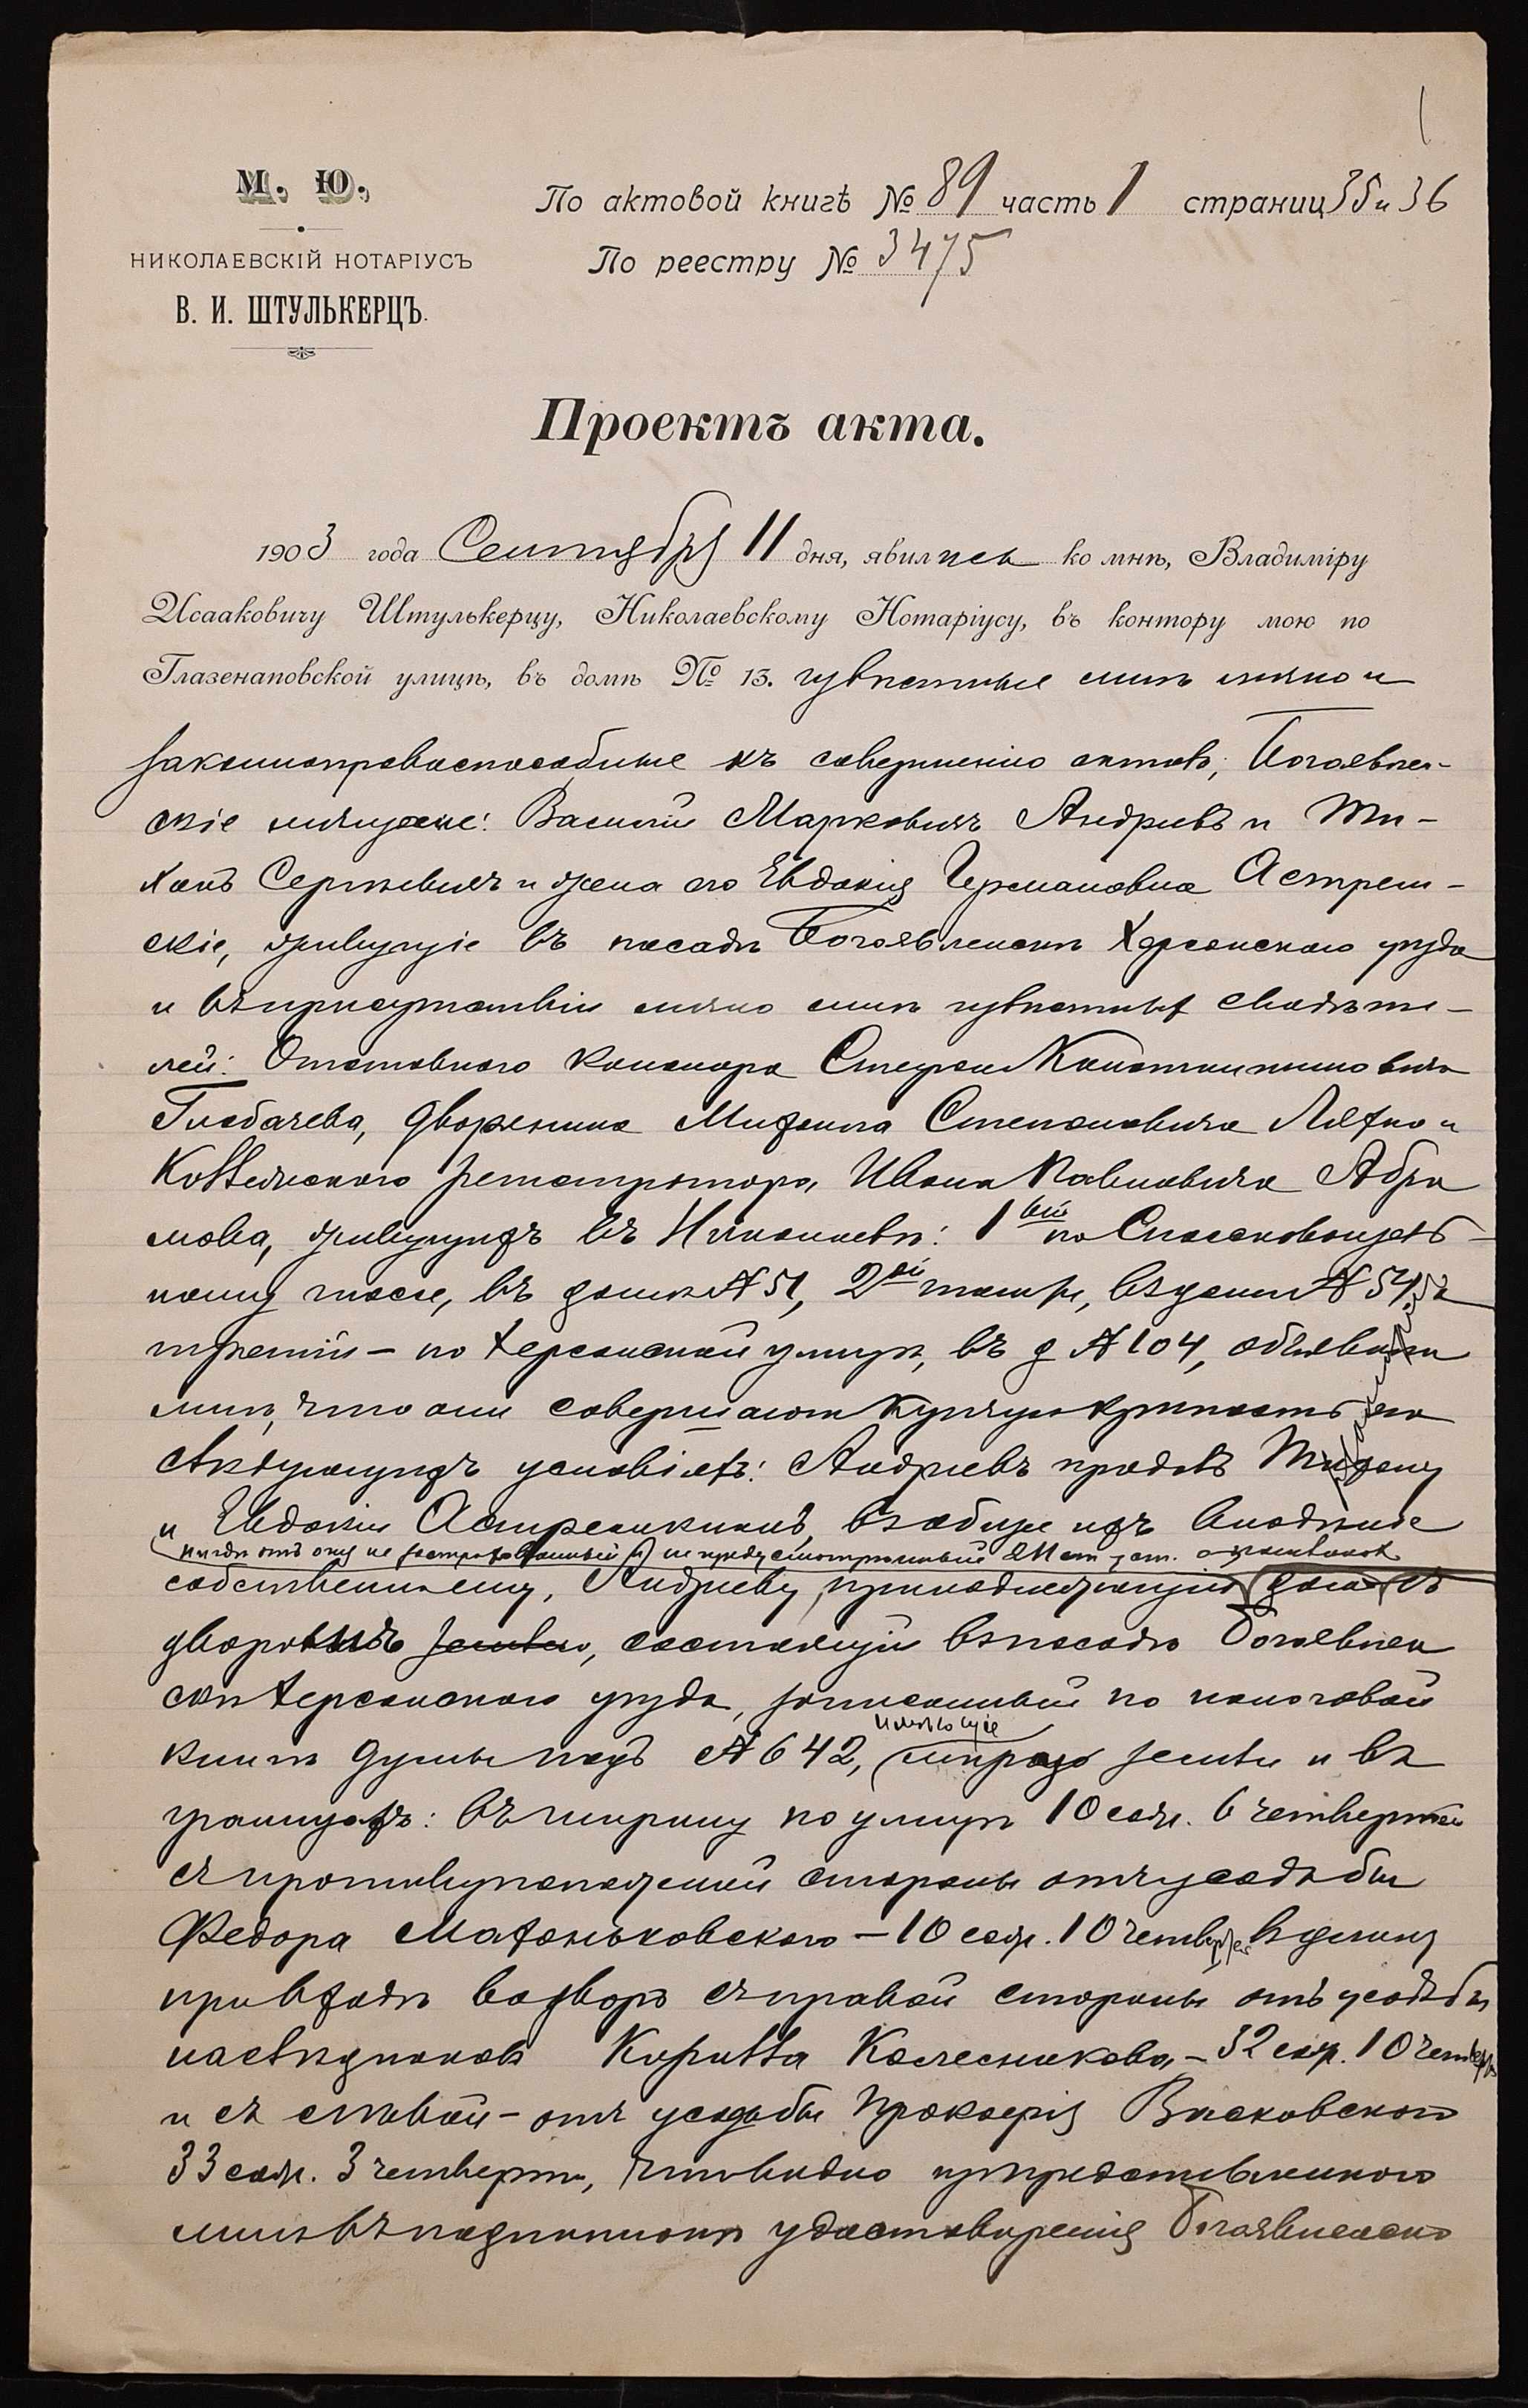 М. Ю.
НИКОЛАЕВСКІЙ НОТАРІУСЪ
В. И. ШТУЛЬКЕРЦЪ.
По актовой книгѣ № 89 часть 1 страниц 35 и 36
По реестру № 3475
Проектъ акта.
1903 года Сентября 11 дня, явились ко мнѣ, Владиміру
Исааковичу Штулькерцу, Николаевскому Нотаріусу, въ контору мою по
Глазенаповской улицѣ, въ домѣ № 13. извѣстные мнѣ лично и
законноправоспособные къ совершенію актовъ, Богоявлен-
скіе мѣщане: Василій Марковичъ Андріевъ и Ти-
хонъ Сергѣевичъ и жена его Евдокія Германовна Астрем-
скіе, живущіе въ посадѣ Богоявленскѣ Херсонскаго уѣзда
и въ присутствіи лично мнѣ извѣстныхъ свидѣте-
лей: Отставного Стефана Константиновича
Глобачева, дворянина Михаила Степановича и
Ивана Павловича Абра
мова, живущихъ въ Николаевѣ: 1вый по
ному шоссе, въ домѣ № 51, 2ой тамъ же, въ домѣ № 54, а
третій – по Херсонской улицѣ, въ д № 104, объявили
мнѣ, что они совершаютъ купчую крѣпость на
слѣдующихъ условіяхъ: Андріевъ продалъ Тихону
и Евдокіи въ общее ихъ владѣніе
нигдѣ отъ огня не застрахованный и не предусмотрѣнный ст. уст.
собственный ему, Андріеву, принадлежащій домъ съ
дворовымъ, состоящій въ посадѣ Богоявлен
скѣ Херсонскаго уѣзда, записанный по налоговой
книгѣ думы подъ № 642, мѣрою земли и въ
границахъ: въ ширину по улицѣ 10 саж. 6 четвертей
съ противуположной стороны отъ усадьбы
Федора Матоньковского – 10 саж. 10 четвертей въ длину
при входѣ во дворъ съ правой стороны отъ усадьбы
наслѣдниковъ Колесникова, – 32 саж. 10 четверт
и съ лѣвой – отъ усадьбы Прокофія Висковского
33 саж. 3 четверти, что видно изъ представленного
мнѣ въ подлинникѣ удостовѣренія Богоявленско